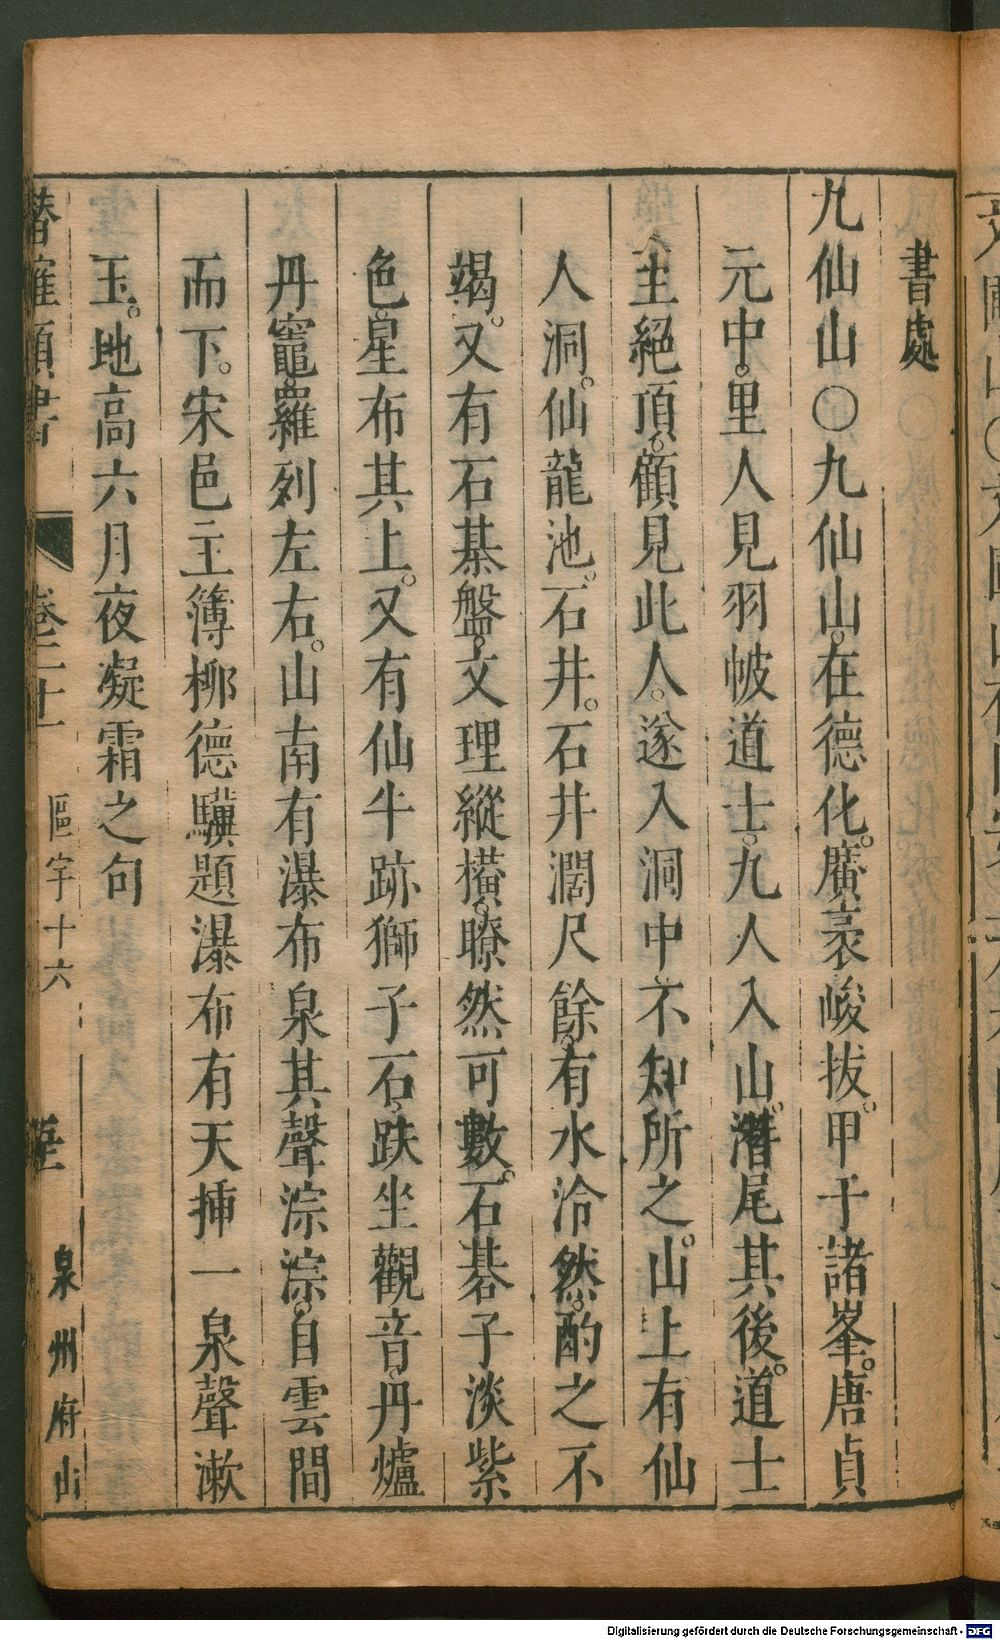 書處
九仙山○九仙山。在德化。廣袤峻拔。甲于諸峯。唐貞
元中。里人見羽帔道士。九人入山。潛尾其後。道士
至絕頂。顧見此人。遂入洞中、不知所之。山上有仙
人洞。仙龍池。石井。石井濶尺餘。有水泠然。酌之不
竭。又有石棊盤。文理縱橫。瞭然可數。石碁子淡紫
色。星布其上。又有仙牛跡獅子石、趺坐觀音、丹爐
丹竈。羅列左右。山南有瀑布泉其聲淙淙。自雲間
而下。宋邑主簿柳德驥題瀑布有天挿一泉聲漱
玉。地高六月夜凝霜之句
卷二十一
區宇十六
泉州府山
Digitalisierung gefördert durch die Deutsche Forschungsgemeinschaft - DFG